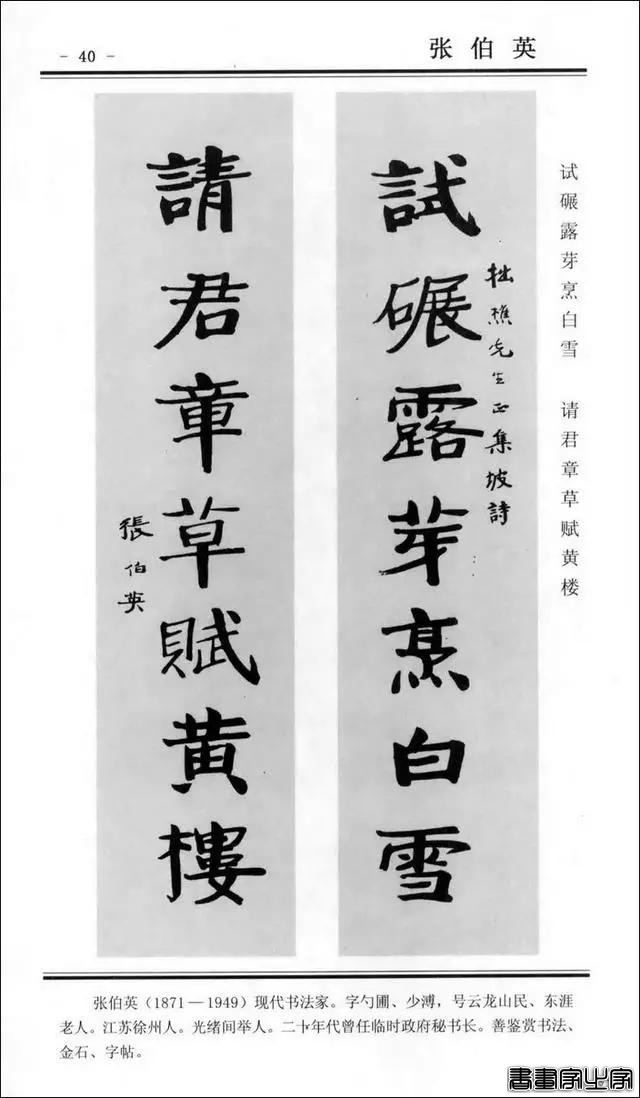 - 40 -
张伯英
試碾露芽烹白雪
拙樵先生正集坡詩
請君章草賦黃樓
張伯英
试碾露芽烹白雪　请君章草赋黄楼
张伯英(1871—1949)现代书法家。字勺圃、少溥，号云龙山民、东涯
老人。江苏徐州人。光绪间举人。二十年代曾任临时政府秘书长。善鉴赏书法、
金石、字帖。
書畫字山字